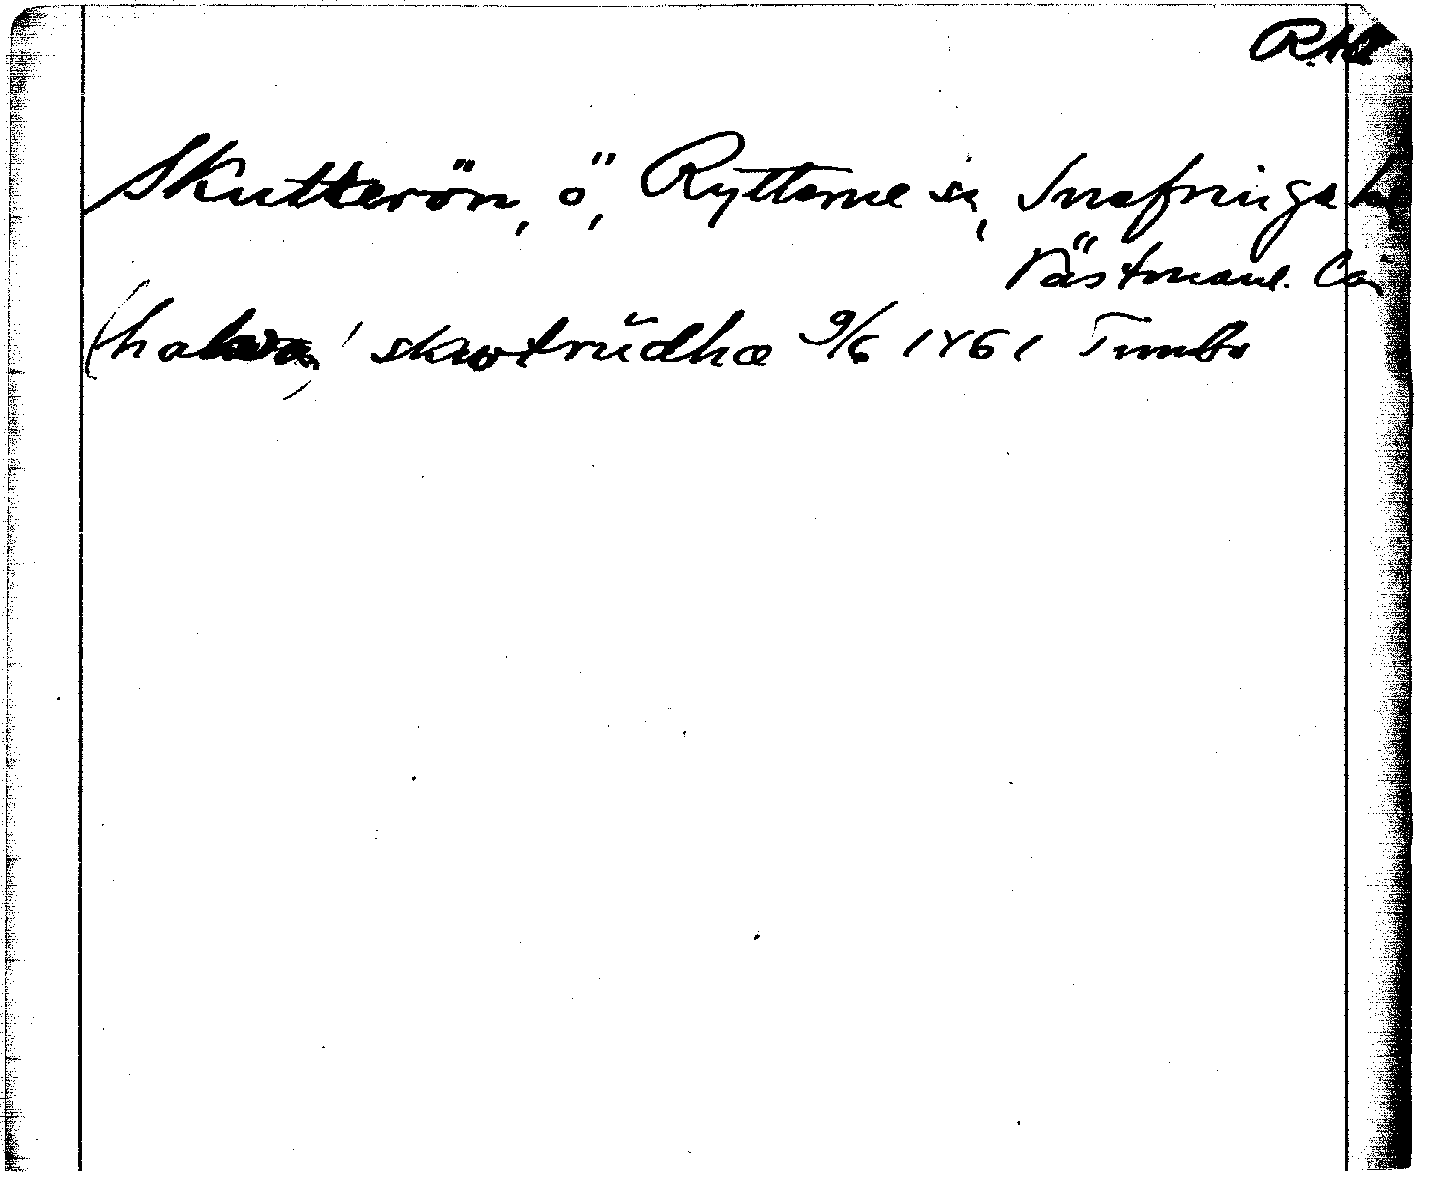 RA0
Skutterön, ö, Rytterne sn, Snefringe hd
Västmanl. län
(halwa) skwtrüdhæ 9/6 1461 Tumbo